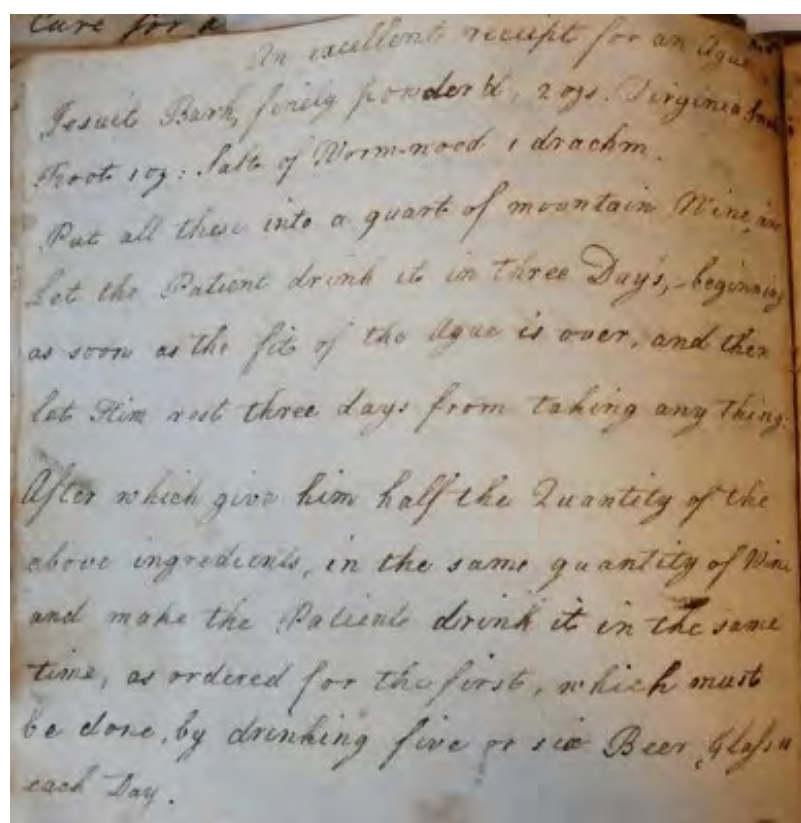 Cure for a
An excellent receipt for an Ague
Jesuit Bark, finely powder'd, 2 ozs. Virginia Snake
Root 1 oz: Salt of Wormwood 1 drachm.
Put all these into a quart of mountain Wine, an
Let the Patient drink it in three Day's, beginning
as soon as the fit of the Ague is over, and then
let Him rest three days from taking any Thing:
After which give him half the Quantity of the
above ingredients, in the same quantity of Wine
and make the Patient drink it in the same
time, as ordered for the first, which must
be done, by drinking five or six Beer, Glass"
each Day.